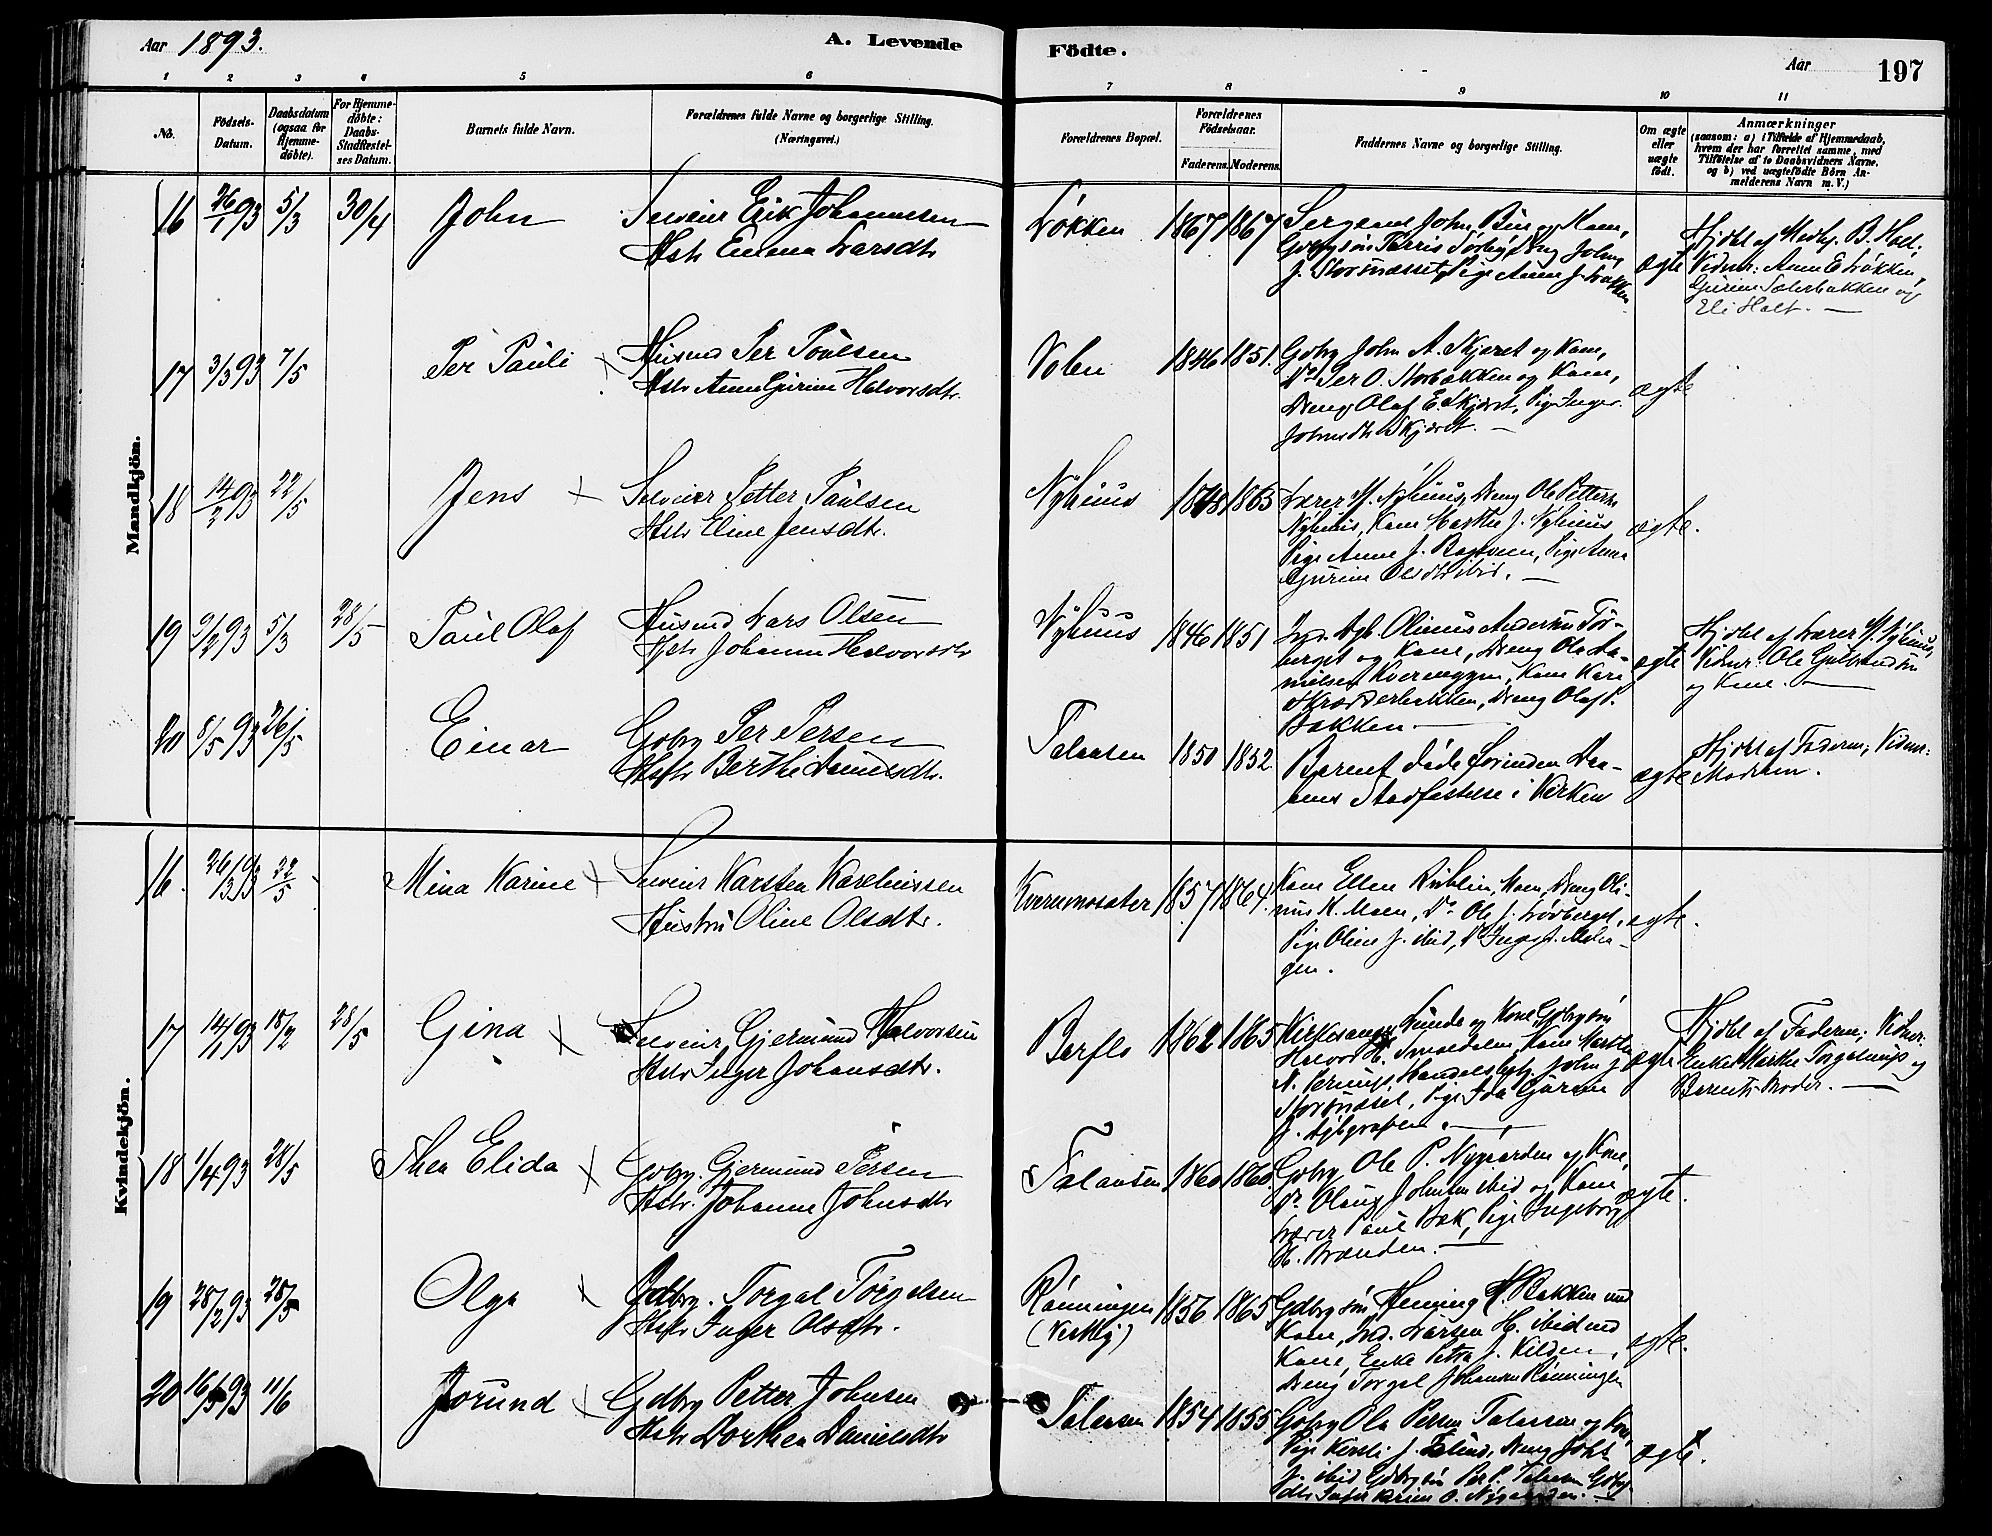 Aar 1893.
A. Levende
Födte.
Aar
197
1 2 3 4 5 6
7 8 9 10 11
No.
Födsels-
Datum.
Daabsdatum
(ogsaa for
Hjemme-
döbte).
For Hjemme-
döbte:
Daabs-
Stadfæstel-
ses Datum.
Barnets fulde Navn.
Forældrenes fulde Navne og borgerlige Stilling.
(Næringsvei.)
Forældrenes Bopæl.
Forældrenes
Födselsaar.
Faderens. Moderens.
Faddernes Navne og borgerlige Stilling.
Om ægte
eller
uægte
födt.
Anmærkninger
(saasom: a) i Tilfælde af Hjemmedaab,
hvem der har forrettet samme, med
Tilföielse af to Daabsvidners Navne,
og b) ved uægtefödte Börn An-
melderens Navn m. V.)
Mandkjön.
16 26/1 93 5/3 30/4 John
Selveier Erik Johannesen
Hstr Emma Larsdtr
Løkken 1867 1867
Sergeant John Bu og Kone,
J. Storønæsset, Pige Anne J. Løkken
ægte
Hjdbt af
Vidner: Anne E Løkken,
Gurine Sæterbakken og
Eli Holt. —
17 3/3 93 7/5 Per Pauli
Husmd Per Poulsen
Hstr Anne Gurine Halvorsdtr.
Volen 1846 1851.
Gdbr John A. Skjæret og Kone,
Do Per O. Storbakken og Kone,
Dreng Olaf E. Skjæret, Pige Inger
Johnsdtr Skjæret. —
ægte
18 14/2 93 22/5 Jens
Selveier Petter Paulsen
Hstr Eline Jensdtr.
Nyhuus 1848 1865
Lærer M. Nyhuus, Dreng Ole Petters.
Nyhuus, Kone Marthe J. Nyhuus
Pige Anne J. , Pige Anne
Gurine Olsdtr ibid. —
ægte.
19 9/2 93 5/3 28/5 Paul Olaf
Husmd Lars Olsen
Hstr Johanne Halvorsdtr
Nyhuus 1846 1851
Ind. Agb. Olinus Andersen Tør-
berget og Kone, Dreng Ole Da-
nielsen Kverneggen, Kone Kari
Skrædderbakken, Dreng Olaf P.
Bakken —
ægte
Hjdbt af Lærer M. Nyhuus,
Vidner: Ole Gulbrandsen
og Kone. —
20 8/5 93 26/5 Einar
Gdbr Per Persen
Hstr Berthe Danielsdtr.
Talaasen 1850 1852
Barnet døde forinden Daa-
bens Stadfæstelse i Kirken
ægte
Hjdbt af Faderen, Vidner:
Moderen.
Kvindekjön.
16. 26/3 93 22/5 Mina Karine
Selveier Karsten Karelniussen
Hustru Oline Olsdtr.
Kvernmosæter 1857 1864.
Kone Ellen Rublin Moen, Dreng Oli-
nus K. Moen, Do Ole J. Lørberget,
Pige Oline J. ibid, Do Inga J.
gen.
ægte.
17 14/1 93 18/2 28/5 Gina
Selveier Gjermund Halvorsen
Hstr Inger Johansdtr.
Berflo 1862 1865
Kirkesanger Lunde og Kone, Gdbrsøn
Halvor H. Smaldalen, Kone Marthe
N. Persmo, Handelsbetj. John J.
Storønæsset, Pige Ida Gurine
ægte
Hjdbt af Faderen; Vidner:
Enke Marthe Torgalsmo og
Barnets Moder. —
18 1/4 93 28/5 Thea Elida
Gdbr. Gjermund Persen
Hstr. Johanne Johnsdtr
Talaasen 1860 1860
Gdbr Ole P. Nygaarden og Kone,
Do Olaus Johnsen ibid og Kone
Lærer Paul Bak, Pige Ingeborg
H. Brænden. —
ægte.
19 28/2 93 28/5 Olga
Gdbr. Torgal Torgalsen
Hstr Inger Olsdtr.
Rønningen
(Vestby) 1856 1865
Gdbrsøn Henning H. Bakken med
Kone, Ind. Larsen H. ibid med
Kone, Enke Petra J. Kilden,
Dreng Torgal Johansen Rønningen
ægte.
20 16/3 93 11/6 Jorund
Gdbr Petter Johnsen
Hstr Dorthea Danielsdtr
Talaasen 1854 1855
Gdbr Ola Persen Talaasen og Kone,
Pige Kersti J. , Dreng John
J. ibid Gdbrsøn Per P. Talaasen Gdbr-
dtr Inger Karine O. Nygaarden. —
ægte.